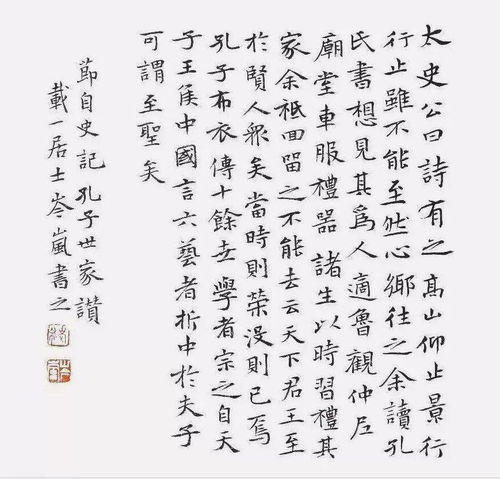 太史公曰詩有之高山仰止景行
行止雖不能至然心鄉往之余讀孔
氏書想見其爲人適魯觀仲尼
廟堂車服禮器諸生以時習禮其
家余祗回留之不能去云天下君王至
於賢人眾矣當時則榮没則已焉
孔子布衣傳十餘世學者宗之自天
子王侯中國言六藝者折中於夫子
可謂至聖矣
節自史記孔子世家讃
載一居士岑嵐書之